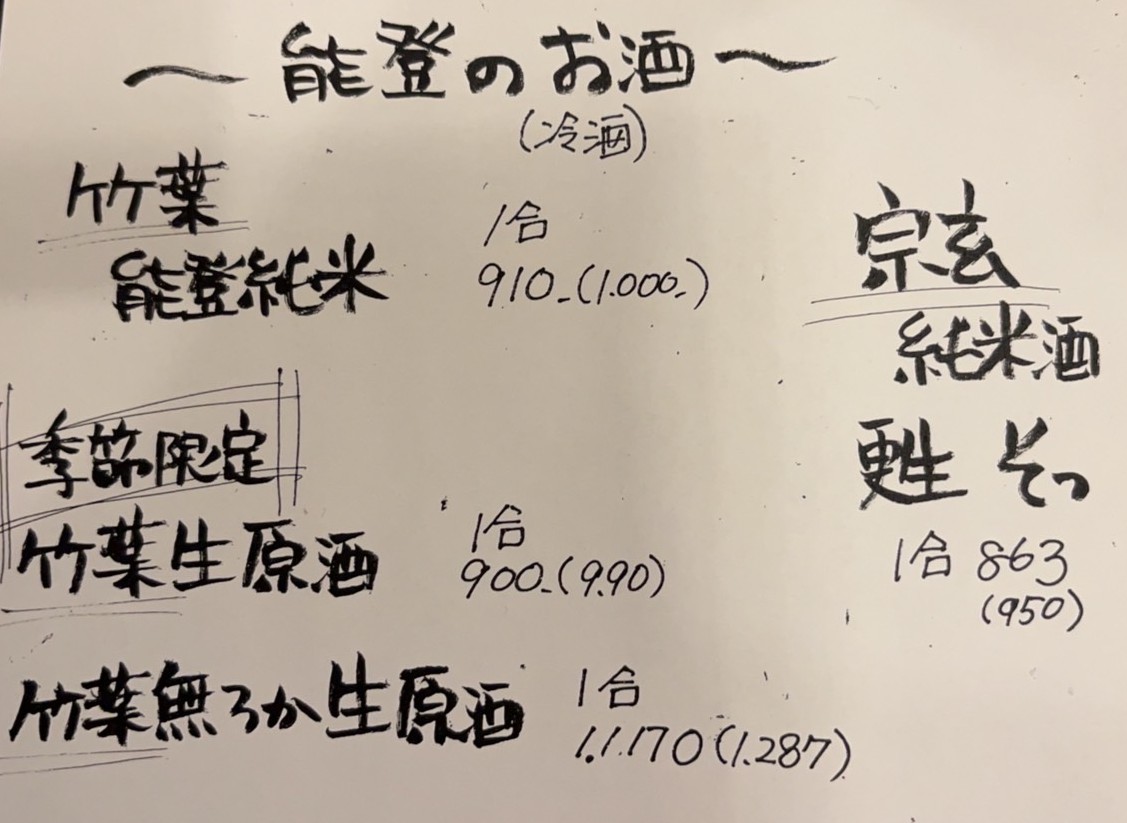 ～能登のお酒～
(冷酒)
竹葉
能登純米
1合
910-(1.000-)
季節限定
竹葉生原酒
1合
900-(990)
竹葉無ろか生原酒
1合
1.1.170(1.287)
宗玄
純米酒
甦 そっ
1合 863
(950)